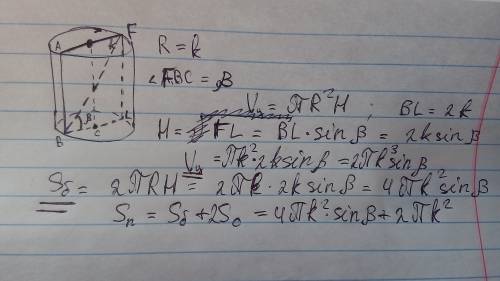 A F
B C L
R = k
∠FBC = β
V_ц = πR²H ; BL = 2k
H = FL = BL · sinβ = 2k sinβ
V_ц = πk² · 2k sinβ = 2πk³ sinβ
S_б = 2πRH = 2πk · 2k sinβ = 4πk² sinβ
S_п = S_б + 2S_о = 4πk² · sinβ + 2πk²